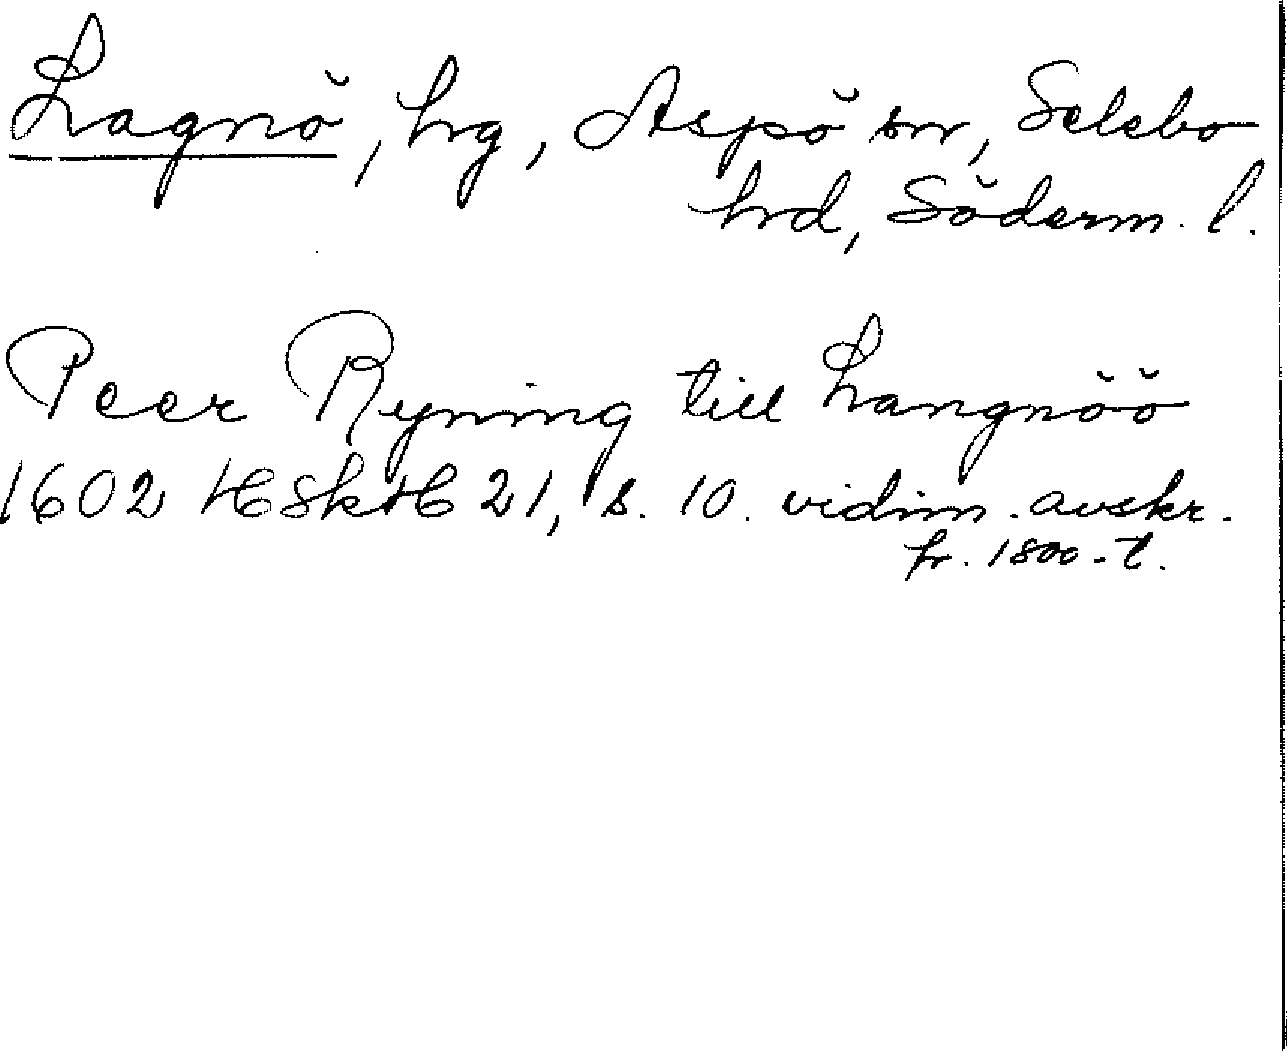 Lagnö, hg, Aspö sn, Selebo
hrd, Söderm. l.
Peer Ryning till Langnöö
1602 HSkH 21, s. 10. vidim. avskr.
fr. 1800-t.